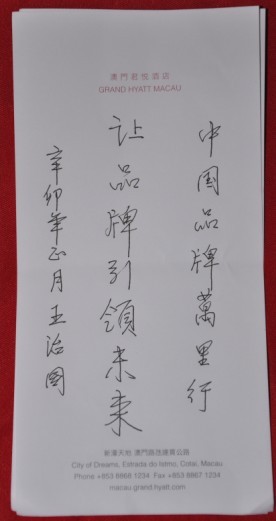 澳門君悦酒店
GRAND HYATT MACAU
中国品牌萬里行
让品牌引領未来
辛卯年正月王治国
新濠天地 澳門路氹連貫公路
City of Dreams, Estrada do Istmo, Cotai, Macau
Phone +853 8868 1234 Fax +853 8867 1234
macau.grand.hyatt.com